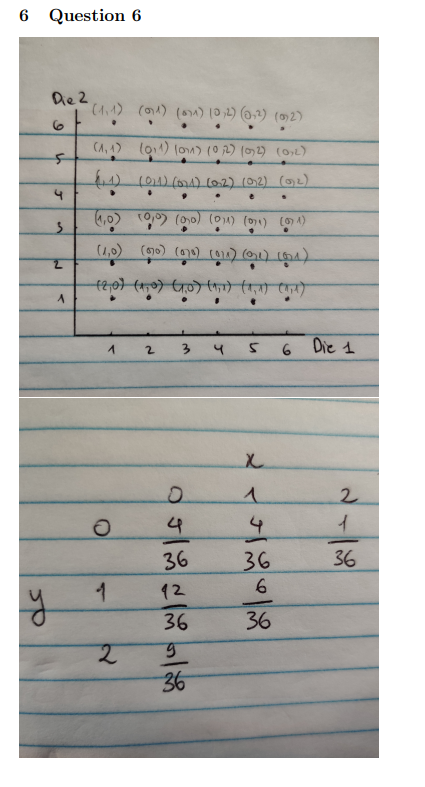 6 Question 6
Die 2
(1,1) (0,1) (0,1) (0,2) (0,2) (0,2)
6
(1,1) (0,1) (0,1) (0,2) (0,2) (0,2)
5
(1,1) (0,1) (0,1) (0,2) (0,2) (0,2)
4
(1,0) (0,0) (0,0) (0,1) (0,1) (0,1)
3
(1,0) (0,0) (0,0) (0,1) (0,1) (0,1)
2
(2,0) (1,0) (1,0) (1,1) (1,1) (1,1)
1
1 2 3 4 5 6 Die 1
x
0 1 2
0 4/36 4/36 1/36
y 1 12/36 6/36
2 9/36